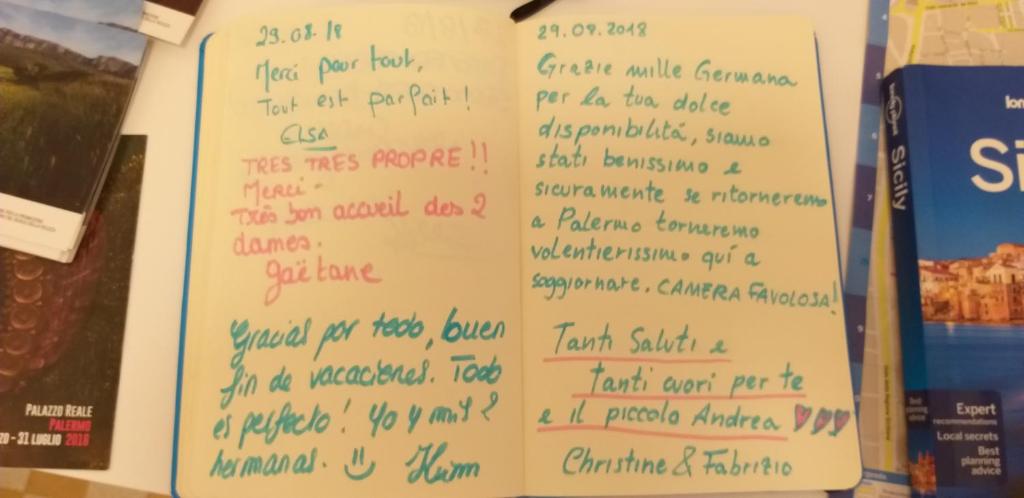 29.08.18
Merci pour tout,
Tout est parfait !
ELSA
TRES TRES PROPRE !!
Merci -
Très bon accueil des 2
dames.
Gaëtane
Gracias por todo, buen
fin de vacaciones. Todo
es perfecto ! Yo y mis 2
hermanas.
29.08.2018
Grazie mille Germana
per la tua dolce
disponibilitá, siamo
stati benissimo e
sicuramente se ritorneremo
a Palermo torneremo
volentierissimo quí a
soggiornare. CAMERA FAVOLOSA!
Tanti Saluti e
tanti cuori per te
e il piccolo Andrea
Christine & Fabrizio
PALAZZO REALE
PALERMO
- 31 LUGLIO 2018
Sicily
Si
Expert
recommendations
Local secrets
Best
planning
advice